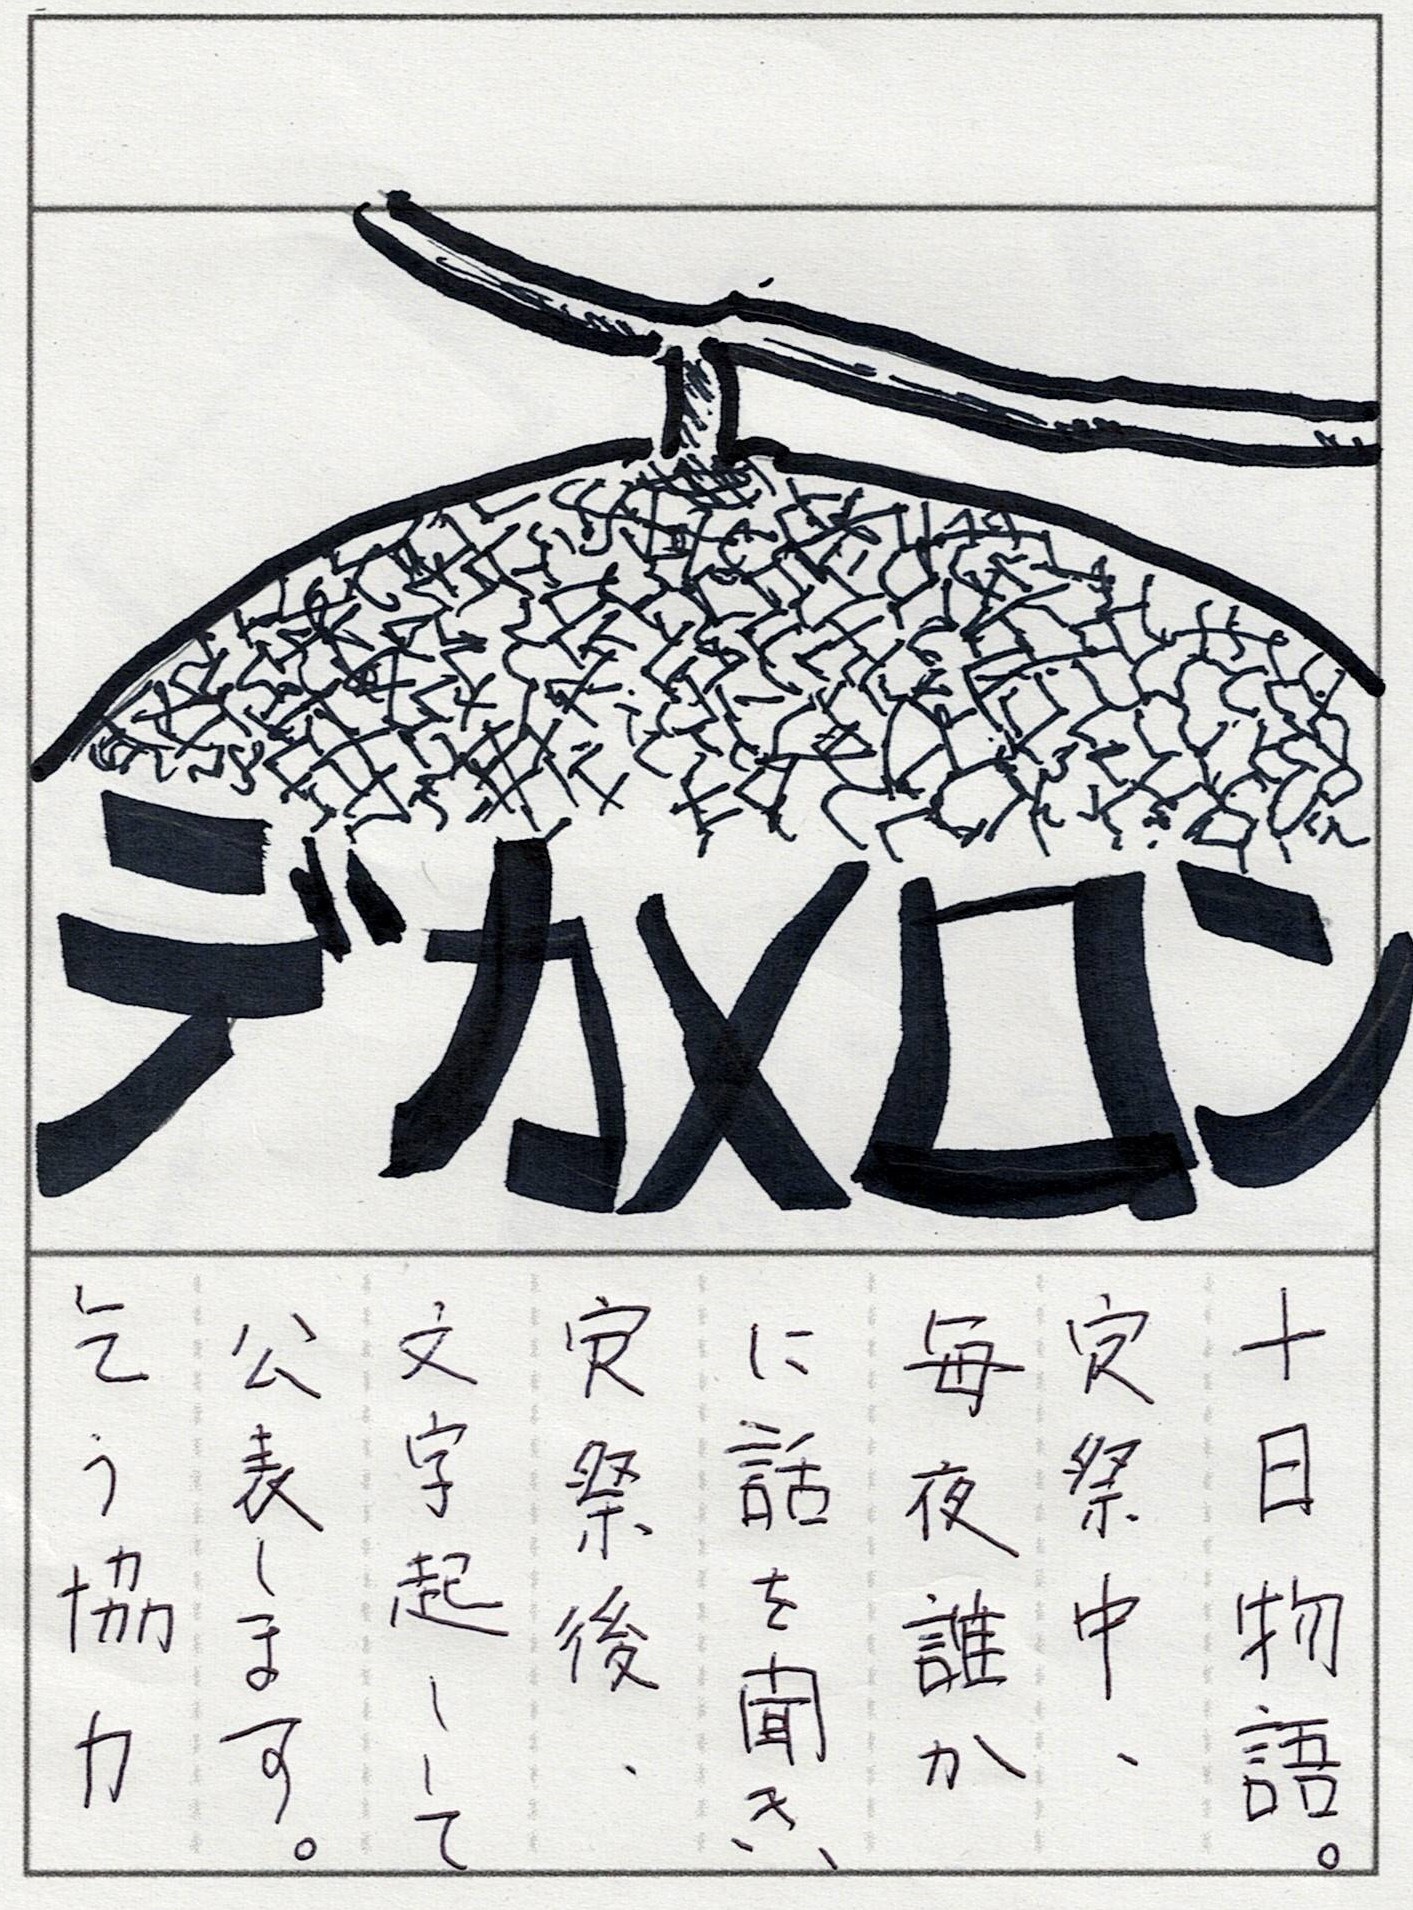 デカメロン
十日物語。
寮祭中、
毎夜誰か
に話を聞き、
寮祭後、
文字起しして
公表します。
乞う協力